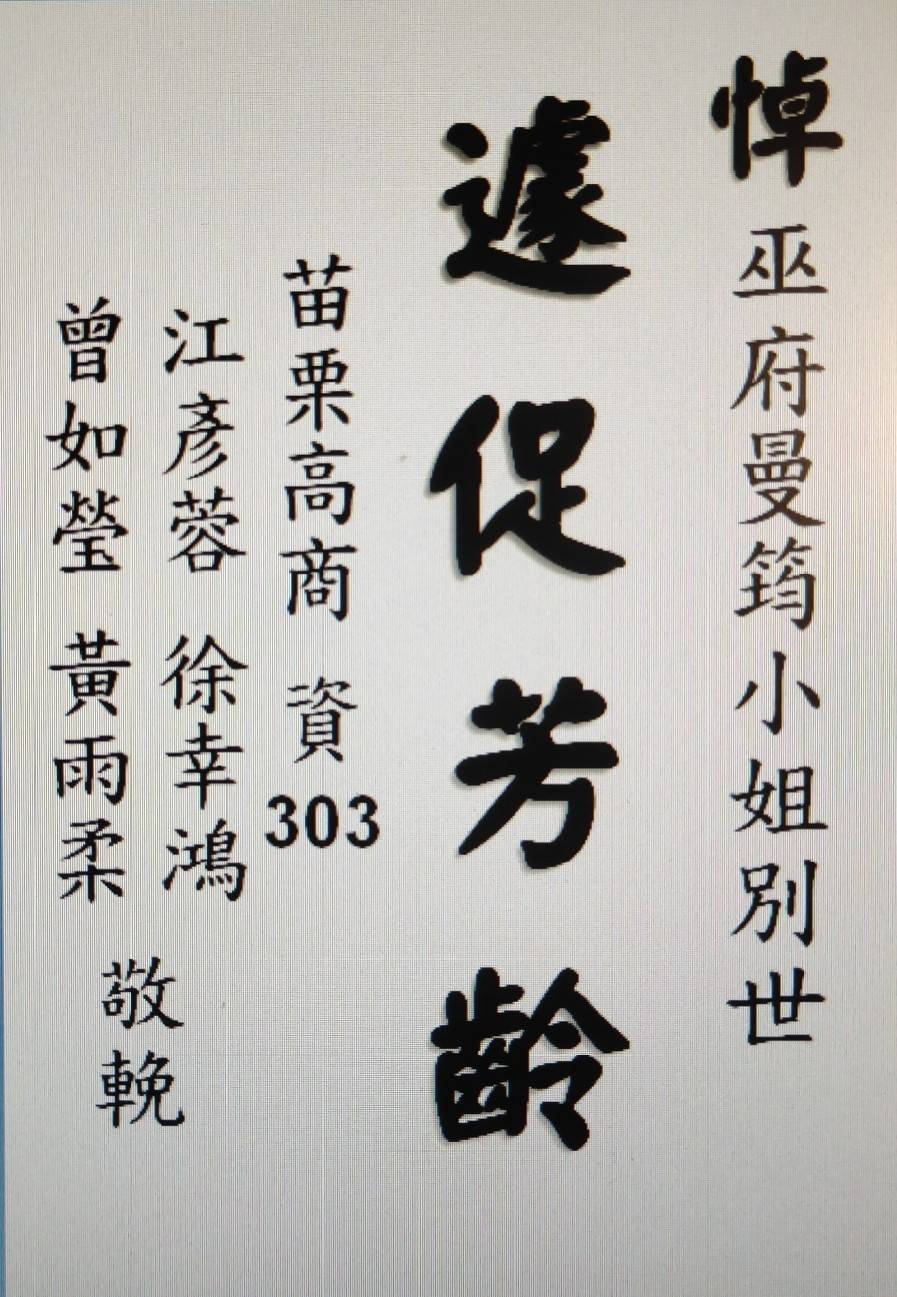 悼巫府曼筠小姐別世
遽促芳齡
苗栗高商 資303
江彥蓉 徐幸鴻
曾如瑩 黃雨柔
敬輓